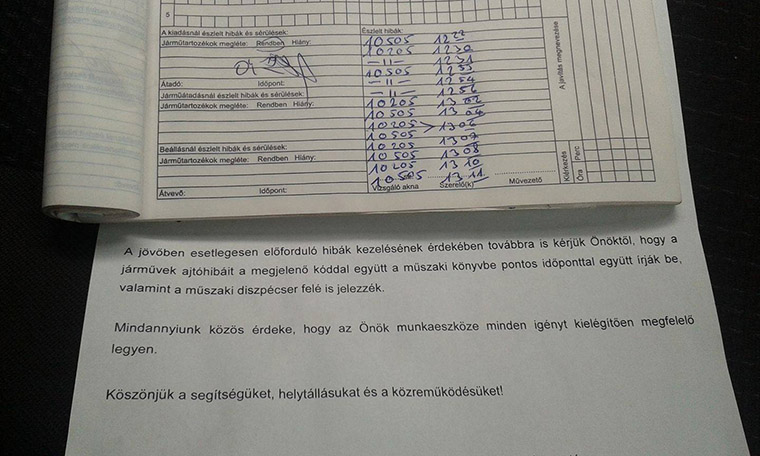 5
A kiadásnál észlelt hibák és sérülések: Észlelt hibák:
Járműtartozékok megléte: Rendben Hiány: 10505 1222
10205 1230
-11- 1231
10505 1233
Átadó: Időpont: -11- 1254
Járműátadásnál észlelt hibák és sérülések: -11- 1256
Járműtartozékok megléte: Rendben Hiány: 10205 1302
10505 1304
10205 > 1306
10505
Beállásnál észlelt hibák és sérülések: 10205 1307
Járműtartozékok megléte: Rendben Hiány: 10505 1308
10205 1310
10505 1311
Átvevő: Időpont: Vizsgáló akna Szerelő(k) Művezető
A javítás megnevezése
Kiérkezés
Óra Perc
A jövőben esetlegesen előforduló hibák kezelésének érdekében továbbra is kérjük Önöktől, hogy a
járművek ajtóhibáit a megjelenő kóddal együtt a műszaki könyvbe pontos időponttal együtt írják be,
valamint a műszaki diszpécser felé is jelezzék.
Mindannyiunk közös érdeke, hogy az Önök munkaeszköze minden igényt kielégítően megfelelő
legyen.
Köszönjük a segítségüket, helytállásukat és a közreműködésüket!